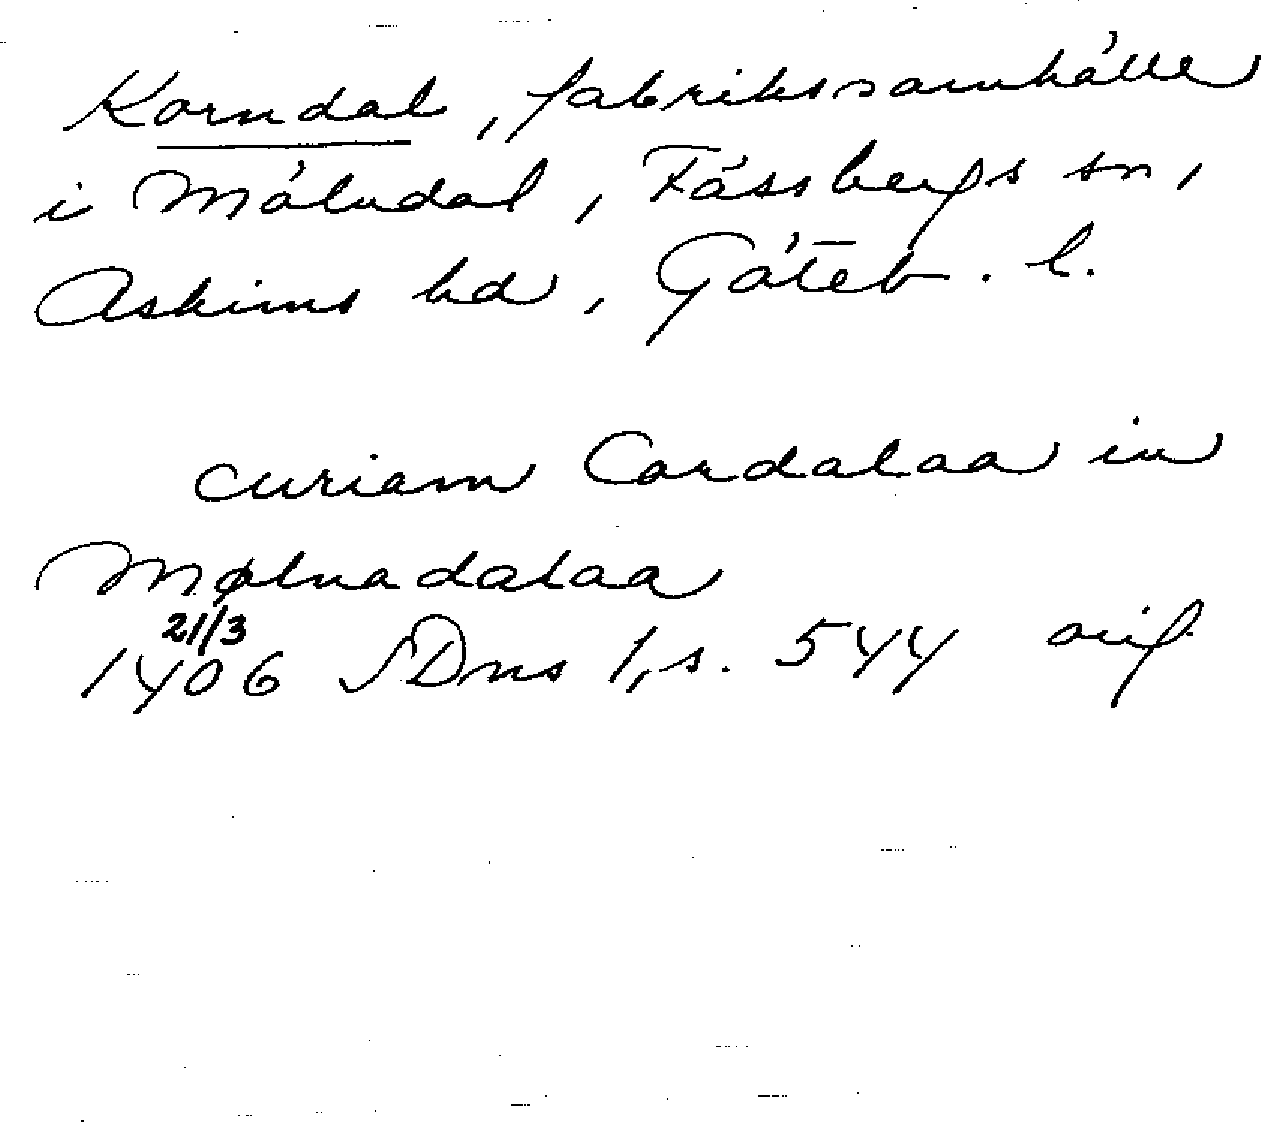 Korndal, fabrikssamhälle
i Mölndal, Fässbergs sn,
Askims hd, Göteb. l.
curiam Cordalaa in
Mølnadalaa
21/3
1406 SDns 1, s. 544 orig